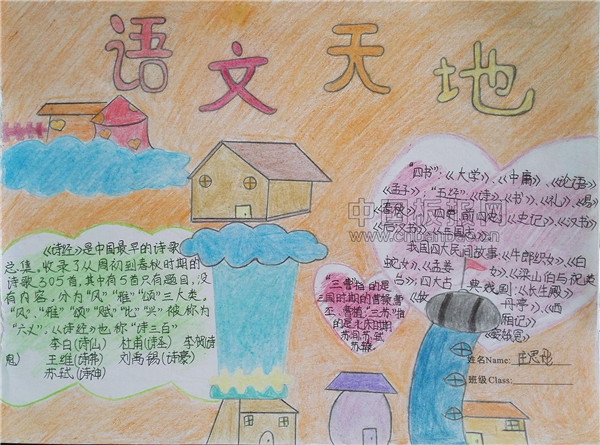 语文天地
《诗经》是中国最早的诗歌
总集。收录了从周初到春秋时期的
诗歌305首,其中有5首只有题目,没
有内容。分为“风”“雅”“颂”三大类。
“风”、“雅”“颂”“赋”“比”“兴”被称为
“六义”。《诗经》也称“诗三百”
李白(诗仙) 杜甫(诗圣) 李贺(诗
鬼) 王维(诗佛) 刘禹锡(诗豪)
苏轼(诗神)
“四书”:《大学》、《中庸》、《论语》
《孟子》,“五经”《诗》、《书》、《礼》、《易》
《春秋》 “四史”前四史:《史记》、《汉书》
《后汉书》、《三国志》
我国四大民间故事:《牛郎织女》、《白
蛇女》、《孟姜
《梁山伯与祝英
台》 四大古
典戏剧:《长生殿》
亭》、《西
厢记》
“三曹”指的是
三国时期的曹操曹
丕、曹植,“三苏”指
的是北宋时期
苏洵苏轼
苏辙。
姓名Name:
班级Class:
中国板报网
www.chinabhb.cn